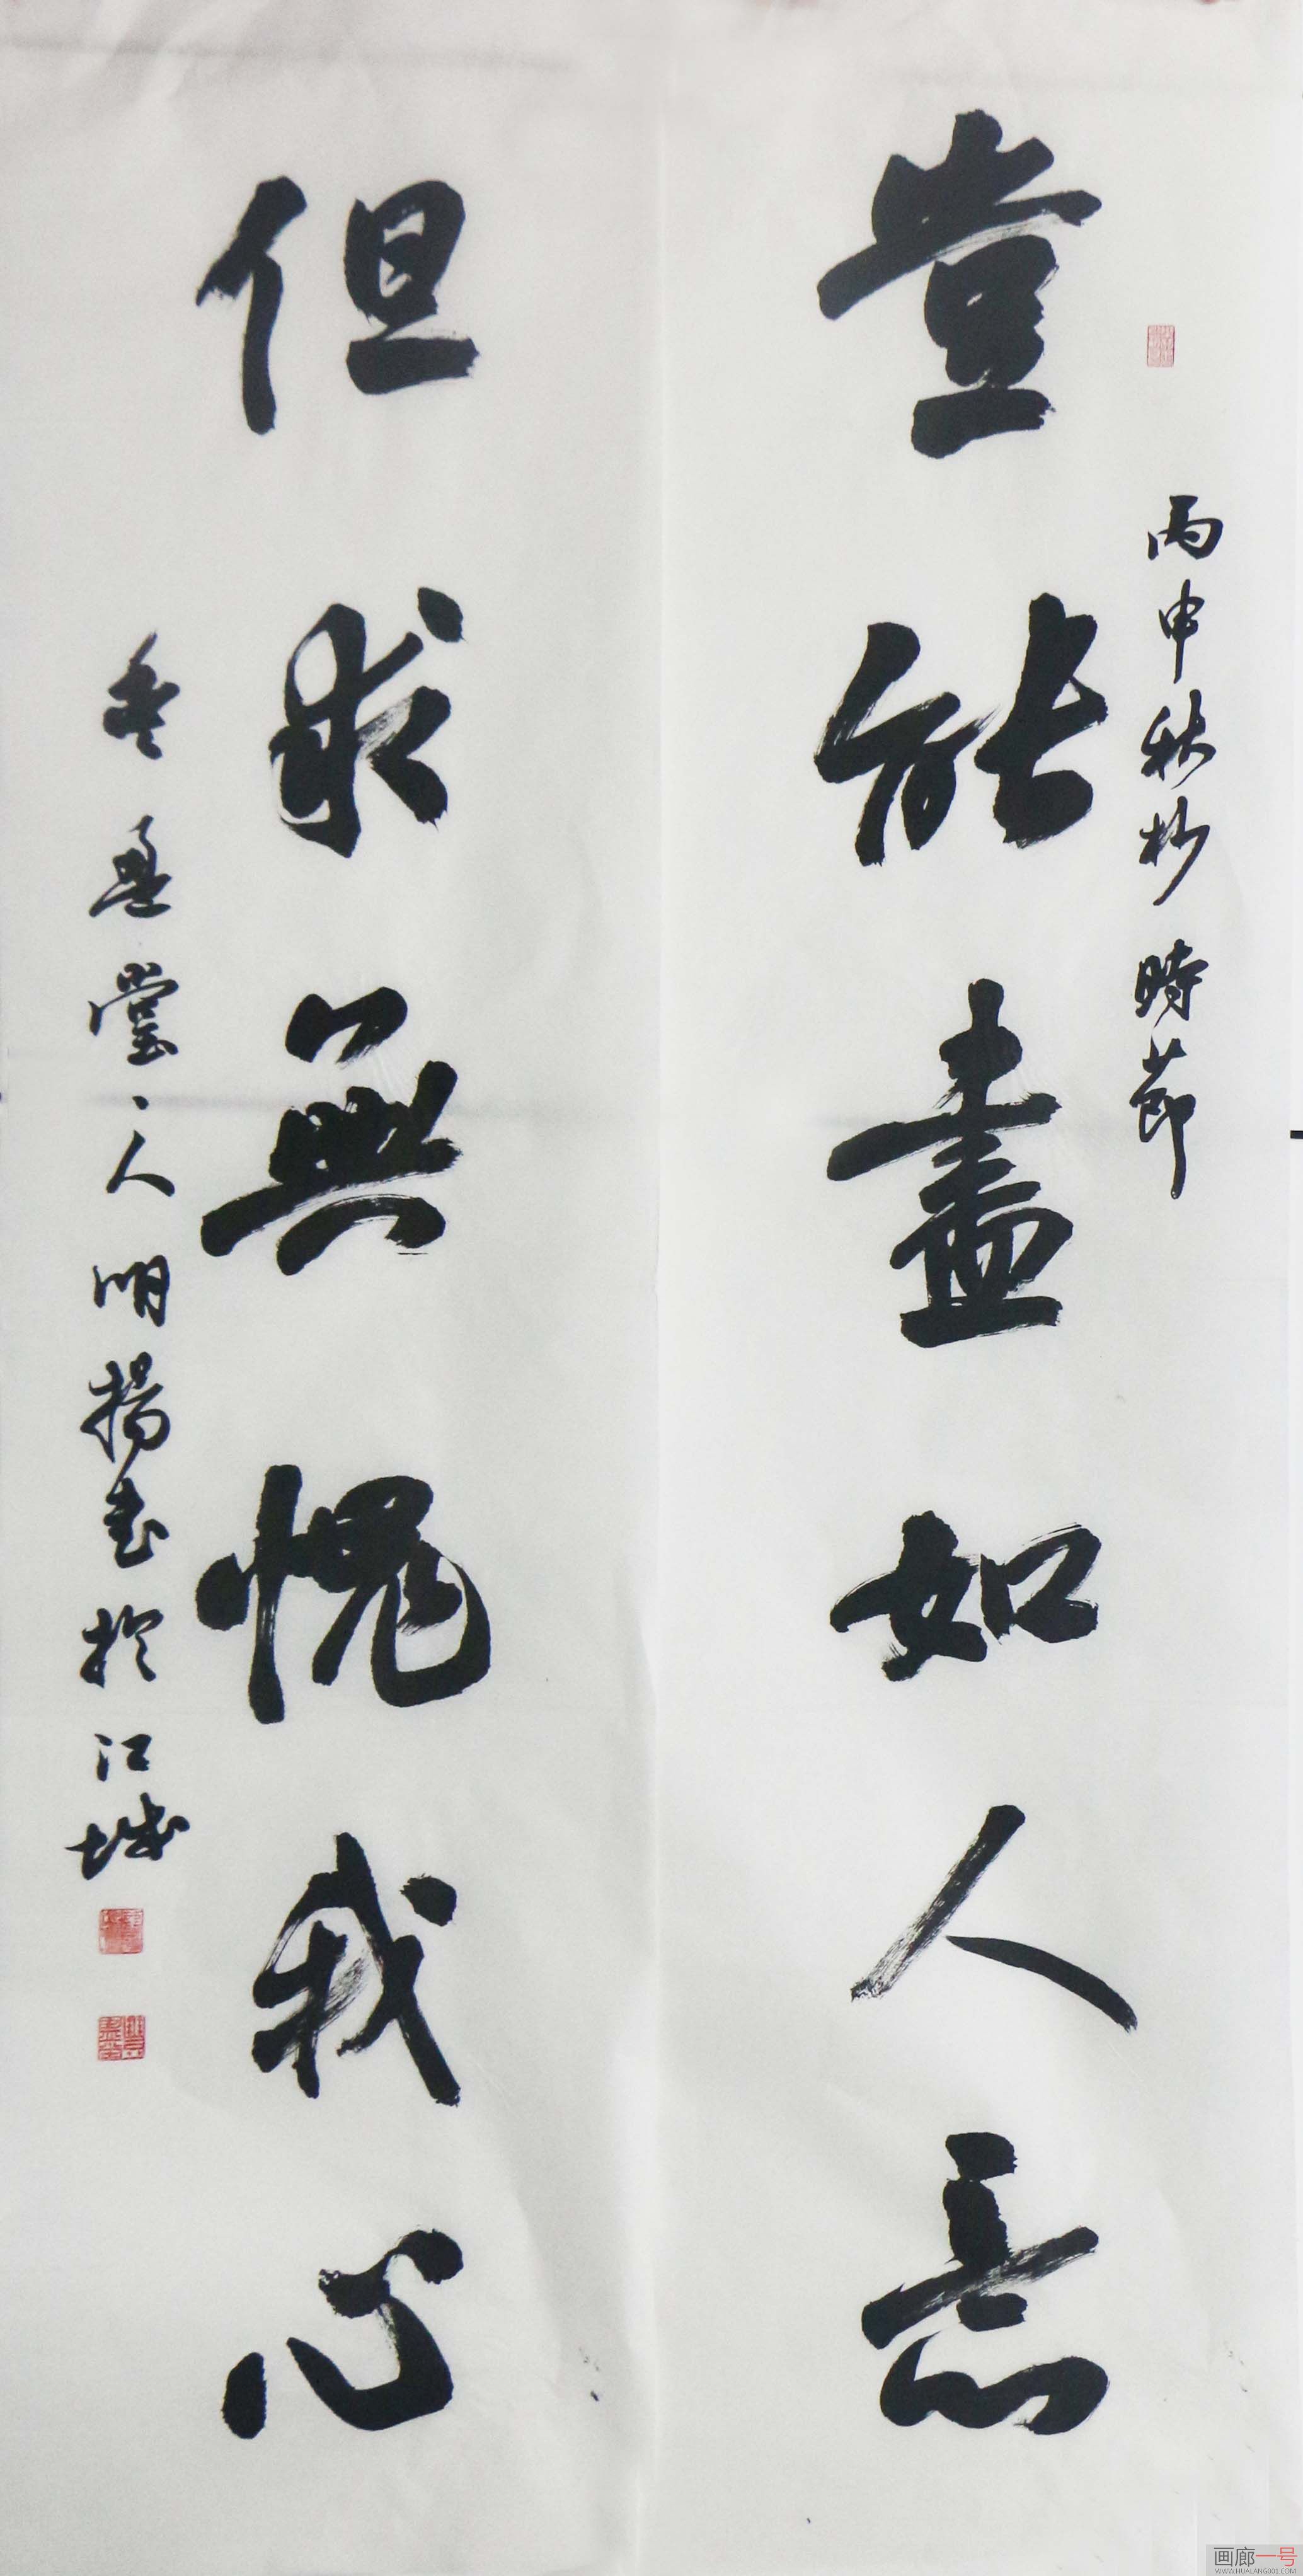 丙申秋杪時節
豈能盡如人意
但求無愧我心
堂之人明揚书於江城
画廊一号
WWW.HUALANG001.COM